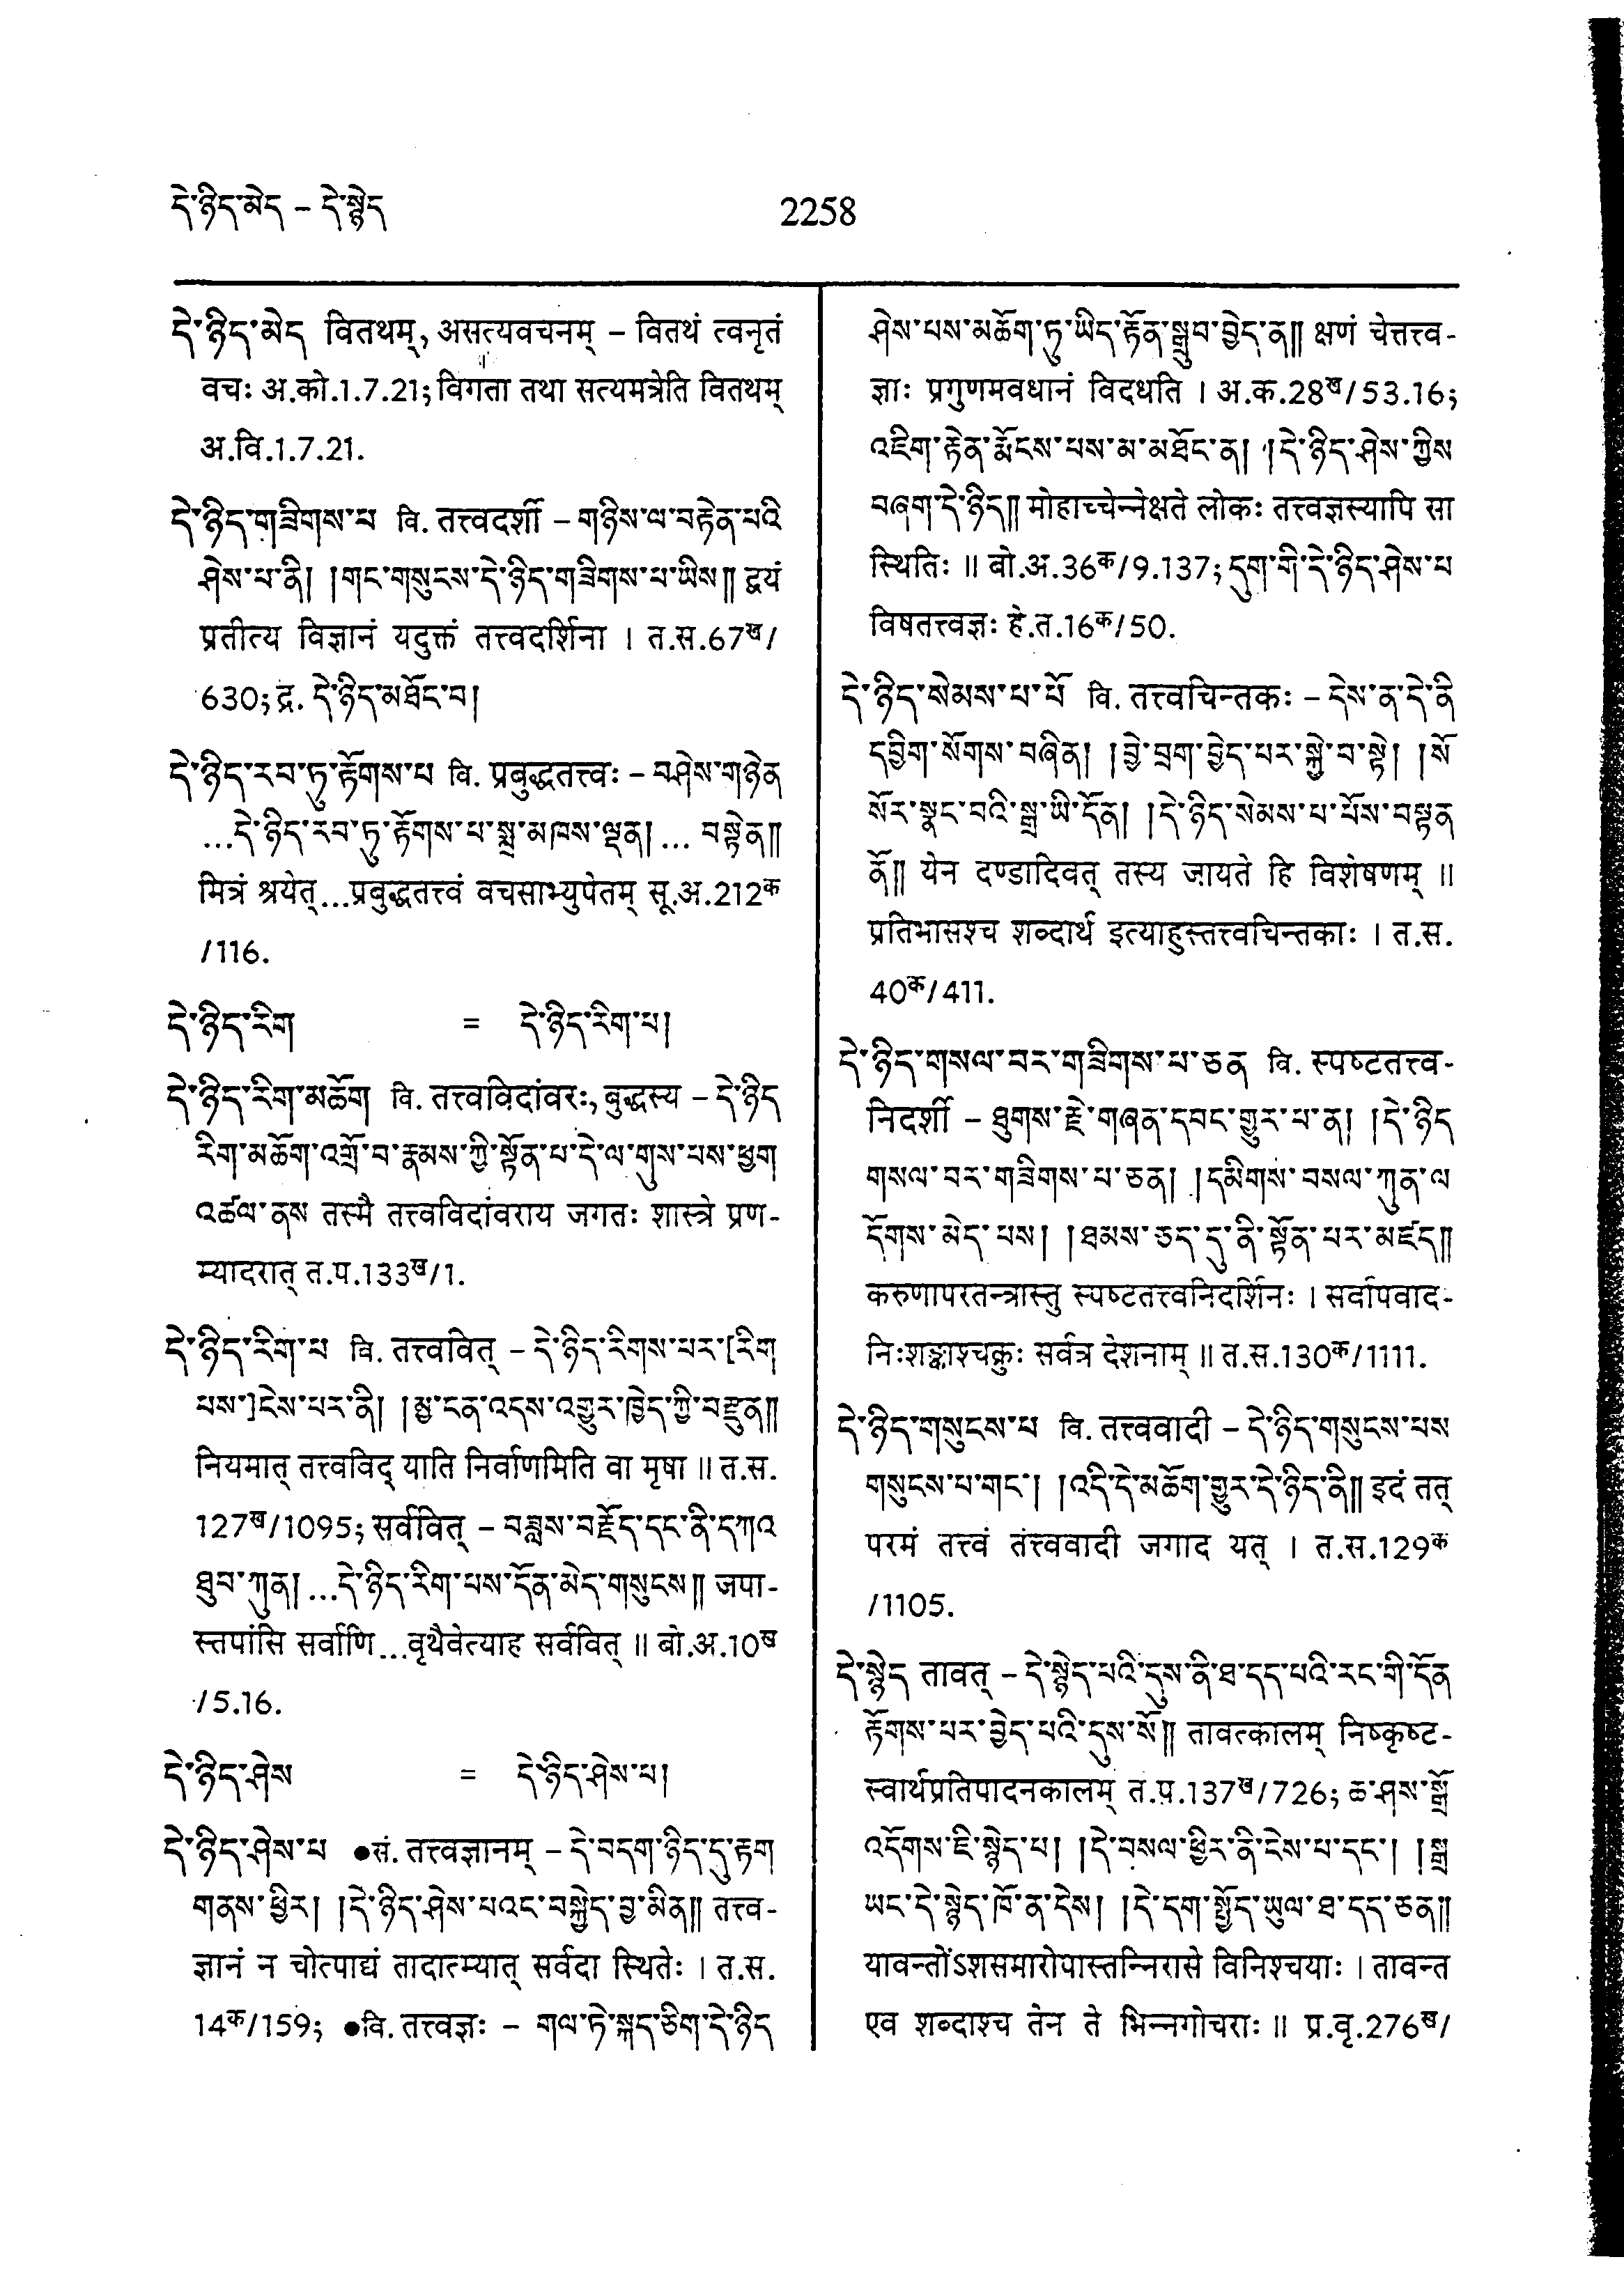 དེ་ཉིད་མེད – དེ་སྙེད
2258
དེ་ཉིད་མེད वितथम्, असत्यवचनम् – वितथं त्वनृतं
वचः अ.को.1.7.21; विगता तथा सत्यमत्रेति वितथम्
अ.वि.1.7.21.
དེ་ཉིད་གཟིགས་པ वि. तत्त्वदर्शी – གཉིས་ལ་བརྟེན་པའི
ཤེས་པ་ནི། །གང་གསུངས་དེ་ཉིད་གཟིགས་པ་ཡིས།། द्वयं
प्रतीत्य विज्ञानं यदुक्तं तत्त्वदर्शिना । त.स.67ख/
630; द्र. དེ་ཉིད་མཐོང་བ།
དེ་ཉིད་རབ་ཏུ་རྟོགས་པ वि. प्रबुद्धतत्त्वः – བཤེས་གཉེན
...དེ་ཉིད་རབ་ཏུ་རྟོགས་པ་སྨྲ་མཁས་ལྡན།... བསྟེན།།
मित्रं श्रयेत्...प्रबुद्धतत्त्वं वचसाभ्युपेतम् सू.अ.212क
/116.
དེ་ཉིད་རིག = དེ་ཉིད་རིག་པ།
དེ་ཉིད་རིག་མཆོག वि. तत्त्वविदांवरः, बुद्धस्य – དེ་ཉིད
རིག་མཆོག་འགྲོ་བ་རྣམས་ཀྱི་སྟོན་པ་དེ་ལ་གུས་པས་ཕྱག
འཚལ་ནས तस्मै तत्त्वविदांवराय जगतः शास्त्रे प्रण-
म्यादरात् त.प.133ख/1.
དེ་ཉིད་རིག་པ वि. तत्त्ववित् – དེ་ཉིད་རིགས་པར་[རིག
པས་]ངེས་པར་ནི། །མྱ་ངན་འདས་འགྱུར་ཁྱེད་ཀྱི་བརྫུན།།
नियमात् तत्त्वविद् याति निर्वाणमिति वा मृषा ॥ त.स.
127ख/1095; सर्ववित् – བཟླས་བརྗོད་དང་ནི་དཀའ
ཐུབ་ཀུན།...དེ་ཉིད་རིག་པས་དོན་མེད་གསུངས།། जपा-
स्तपांसि सर्वाणि...वृथैवेत्याह सर्ववित् ॥ बो.अ.10ख
/5.16.
དེ་ཉིད་ཤེས = དེ་ཉིད་ཤེས་པ།
དེ་ཉིད་ཤེས་པ ●सं. तत्त्वज्ञानम् – དེ་བདག་ཉིད་དུ་རྟག
གནས་ཕྱིར། །དེ་ཉིད་ཤེས་པའང་བསྐྱེད་བྱ་མིན།། तत्त्व-
ज्ञानं न चोत्पाद्यं तादात्म्यात् सर्वदा स्थितेः । त.स.
14क/159; ●वि. तत्त्वज्ञः – གལ་ཏེ་སྐད་ཅིག་དེ་ཉིད
ཤེས་པས་མཆོག་ཏུ་ཡིད་རྟོན་སྒྲུབ་བྱེད་ན།། क्षणं चेत्तत्त्व-
ज्ञाः प्रगुणमवधानं विदधति । अ.क.28ख/53.16;
འཇིག་རྟེན་རྨོངས་པས་མ་མཐོང་ན། །དེ་ཉིད་ཤེས་ཀྱིས
བཞག་དེ་ཉིད།། मोहाच्चेन्नेक्षते लोकः तत्त्वज्ञस्यापि सा
स्थितिः ॥ बो.अ.36क/9.137; དུག་གི་དེ་ཉིད་ཤེས་པ
विषतत्त्वज्ञः हे.त.16क/50.
དེ་ཉིད་སེམས་པ་པོ वि. तत्त्वचिन्तकः – དེས་ན་དེ་ནི
དབྱིག་སོགས་བཞིན། །བྱེ་བྲག་བྱེད་པར་སྐྱེ་བ་སྟེ། །སོ
སོར་སྣང་བའི་སྒྲ་ཡི་དོན། །དེ་ཉིད་སེམས་པ་པོས་བསྟན
ནོ།། येन दण्डादिवत् तस्य जायते हि विशेषणम् ॥
प्रतिभासश्च शब्दार्थ इत्याहुस्तत्त्वचिन्तकाः । त.स.
40क/411.
དེ་ཉིད་གསལ་བར་གཟིགས་པ་ཅན वि. स्पष्टतत्त्व-
निदर्शी – ཐུགས་རྗེ་གཞན་དབང་གྱུར་པ་ན། །དེ་ཉིད
གསལ་བར་གཟིགས་པ་ཅན། །དམིགས་བསལ་ཀུན་ལ
དོགས་མེད་པས། །ཐམས་ཅད་དུ་ནི་སྟོན་པར་མཛད།།
करुणापरतन्त्रास्तु स्पष्टतत्त्वनिदर्शिनः । सर्वापवाद-
निःशङ्काश्चक्रुः सर्वत्र देशनाम् ॥ त.स.130क/1111.
དེ་ཉིད་གསུངས་པ वि. तत्त्ववादी – དེ་ཉིད་གསུངས་པས
གསུངས་པ་གང་། །འདི་དེ་མཆོག་གྱུར་དེ་ཉིད་ནི།། इदं तत्
परमं तत्त्वं तत्त्ववादी जगाद यत् । त.स.129क
/1105.
དེ་སྙེད तावत् – དེ་སྙེད་པའི་དུས་ནི་ཐ་དད་པའི་རང་གི་དོན
རྟོགས་པར་བྱེད་པའི་དུས་སོ།། तावत्कालम् निष्कृष्ट-
स्वार्थप्रतिपादनकालम् त.प.137ख/726; ཆ་ཤས་སྒྲོ
འདོགས་ཇི་སྙེད་པ། །དེ་བསལ་ཕྱིར་ནི་ངེས་པ་དང་། །སྒྲ
ཡང་དེ་སྙེད་ཁོ་ན་དེས། །དེ་དག་སྤྱོད་ཡུལ་ཐ་དད་ཅན།།
यावन्तोंऽशसमारोपास्तन्निरासे विनिश्चयाः । तावन्त
एव शब्दाश्च तेन ते भिन्नगोचराः ॥ प्र.वृ.276ख/